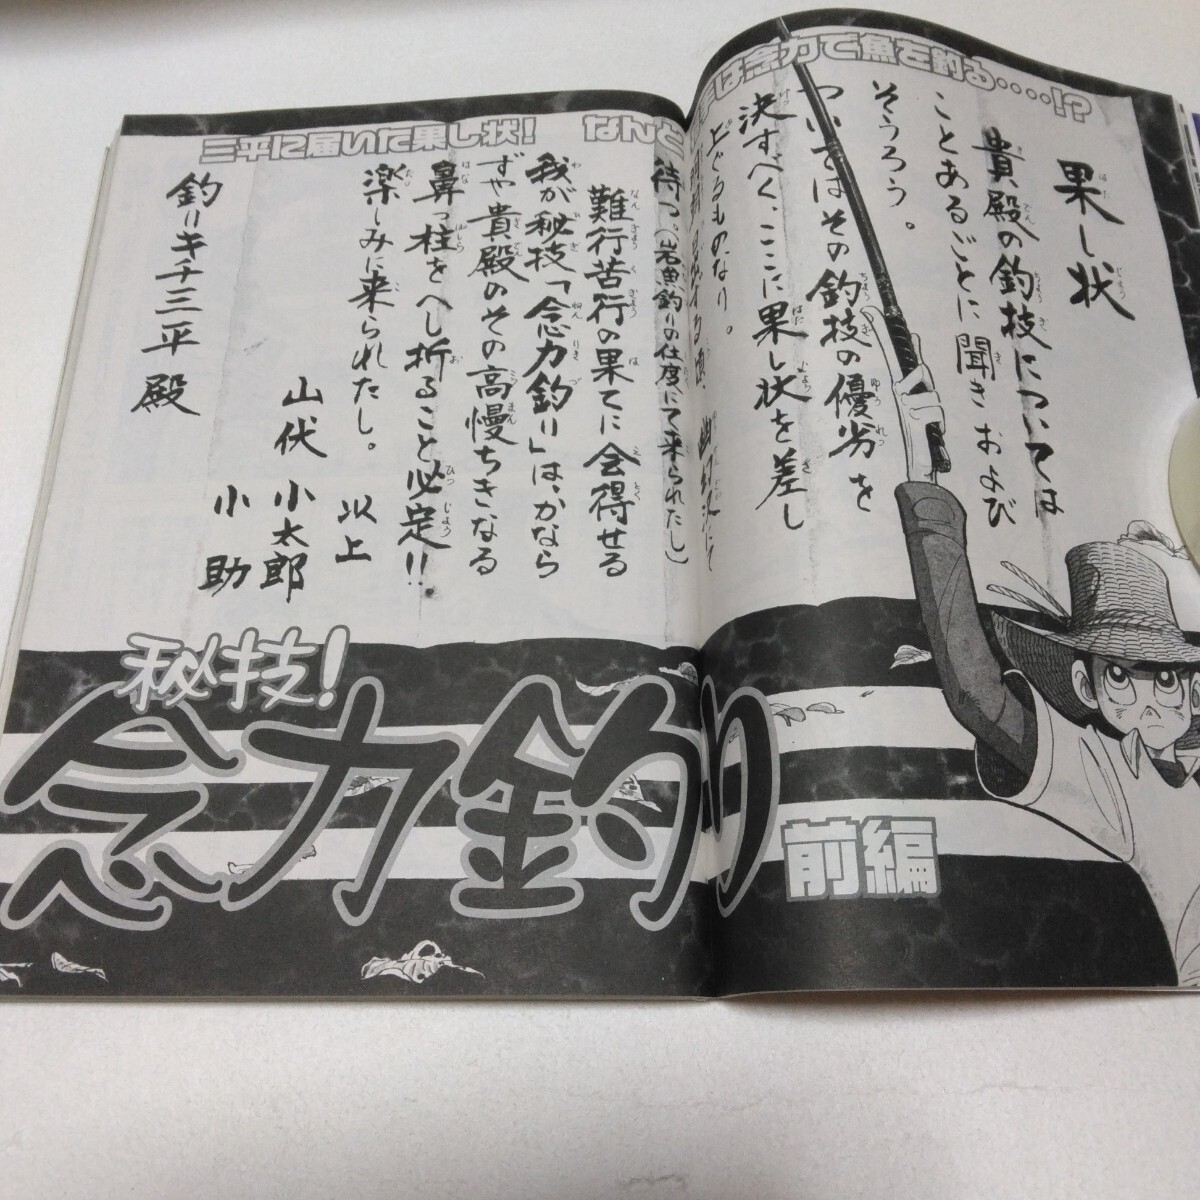 三平に届いた果し状！　なんと
は念力で魚を釣る……!?
果し状
貴殿の釣技については
ことあるごとに聞きおよび
そうろう。
ついてはその釣技の優劣を
決すべく、ここに果し状を差し
上ぐるものなり。
待つ。（岩魚釣りの仕度にて来られたし）
難行苦行の果てに会得せる
我が秘技「念力釣り」は、かなら
ずや貴殿のその高慢ちきなる
鼻っ柱をへし折ること必定!!
楽しみに来られたし。
以上
山伏　小太郎
小助
釣りキチ三平殿
秘技！
念力釣り
前編